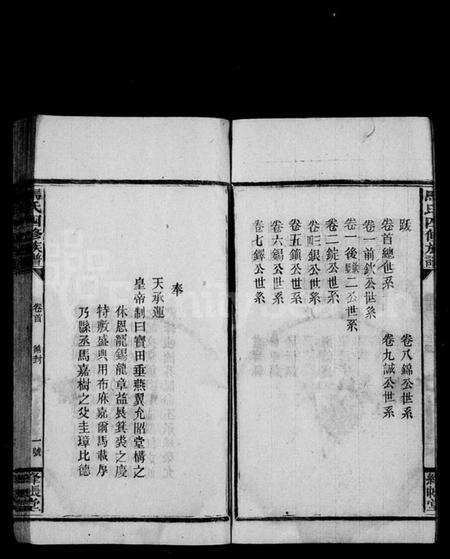 馬氏四修族譜
跋
卷首總世系
卷一前欽公世系
卷一後鑪二公世系
卷二錠公世系
卷四銀公世系
卷五鎮公世系
卷六錫公世系
卷七鐸公世系
卷八錦公世系
卷九誠公世系
奉
天承運
皇帝制曰寶田垂燕翼允昭堂構之
休恩寵錫龍章益長箕裘之慶
特敷盛典用布麻嘉爾馬載厚
乃縣丞馬嘉樹之父圭璋比德
馬氏四修族譜
卷首
一號